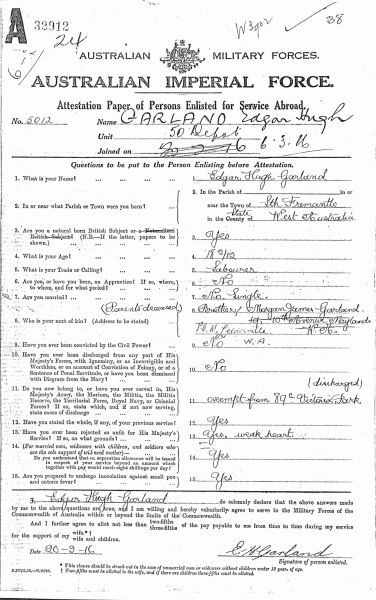 A 33912
24
38
AUSTRALIAN MILITARY FORCES.
AUSTRALIAN IMPERIAL FORCE.
Attestation Paper of Persons Enlisted for Service Abroad.
No. 5012 Name GARLAND Edgar Hugh
Unit 50 Depot
Joined on 6.3.16
Questions to be put to the Person Enlisting before Attestation.
1. What is your Name? 1. Edgar Hugh Garland
2. In or near what Parish or Town were you born? 2. In the Parish of in or
near the Town of Sth Fremantle
in the County of State West Australia
3. Are you a natural born British Subject or a Naturalized
British Subject? (N.B.—If the latter, papers to be
shown.) 3. Yes
4. What is your Age? 4. 18
5. What is your Trade or Calling? 5. Labourer
6. Are you, or have you been, an Apprentice? If so, where,
to whom, and for what period? 6. No
7. Are you married? 7. No. Single.
(Parents deceased)
8. Who is your next of kin? (Address to be stated) 8. Brother Morgan James Garland
10th Avenue Maylands
W.A.
9. Have you ever been convicted by the Civil Power? 9. No
10. Have you ever been discharged from any part of His
Majesty's Forces, with Ignominy, or as Incorrigible and
Worthless, or on account of Conviction of Felony, or of a
Sentence of Penal Servitude, or have you been dismissed
with Disgrace from the Navy? 10. No
(discharged)
11. Do you now belong to, or have you ever served in, His
Majesty's Army, the Marines, the Militia, the Militia
Reserve, the Territorial Force, Royal Navy, or Colonial
Forces? If so, state which, and if not now serving,
state cause of discharge 11. exempt from 89c Victoria Park
12. Have you stated the whole, if any, of your previous service? 12. Yes
13. Have you ever been rejected as unfit for His Majesty's
Service? If so, on what grounds? 13. Yes, weak heart.
14. (For married men, widowers with children, and soldiers who
are the sole support of widowed mother)—
Do you understand that no separation allowance will be issued
in respect of your service beyond an amount which
together with pay would reach eight shillings per day? 14. Yes
15. Are you prepared to undergo inoculation against small pox
and enteric fever? 15. Yes
I, Edgar Hugh Garland do solemnly declare that the above answers made
by me to the above questions are true, and I am willing and hereby voluntarily agree to serve in the Military Forces of the
Commonwealth of Australia within or beyond the limits of the Commonwealth.
And I further agree to allot not less than two-fifths three-fifths of the pay payable to me from time to time during my service
for the support of my wife* wife and children.
Date 20-2-16 E. H. Garland
Signature of person enlisted.
* This clause should be struck out in the case of unmarried men or widowers without children under 18 years of age.
† Two-fifths must be allotted to the wife, and if there are children three-fifths must be allotted.